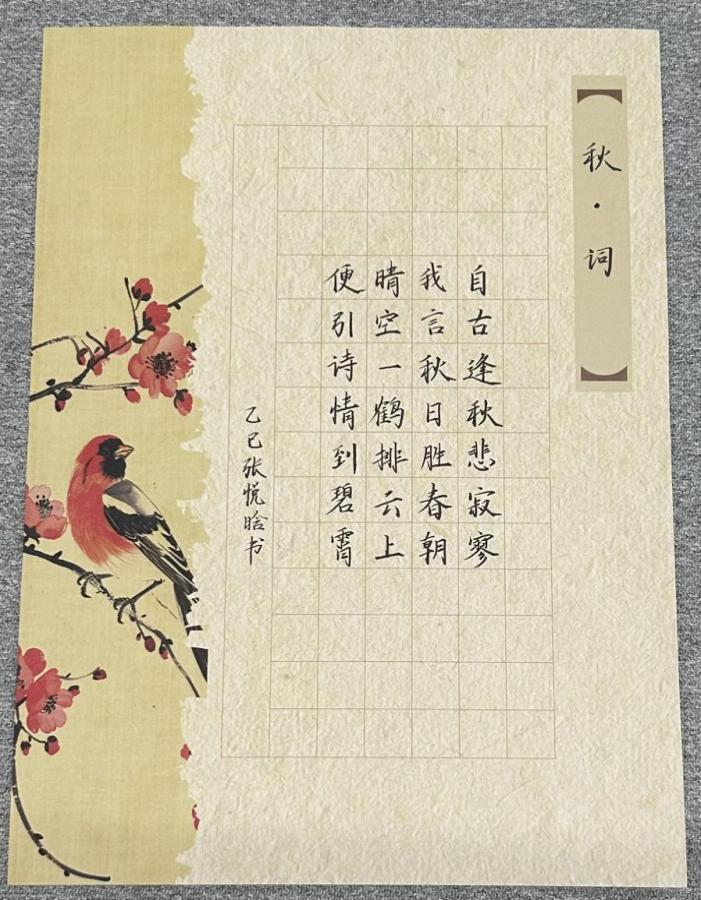 秋·词
自古逢秋悲寂寥
我言秋日胜春朝
晴空一鹤排云上
便引诗情到碧霄
乙巳张悦晗书